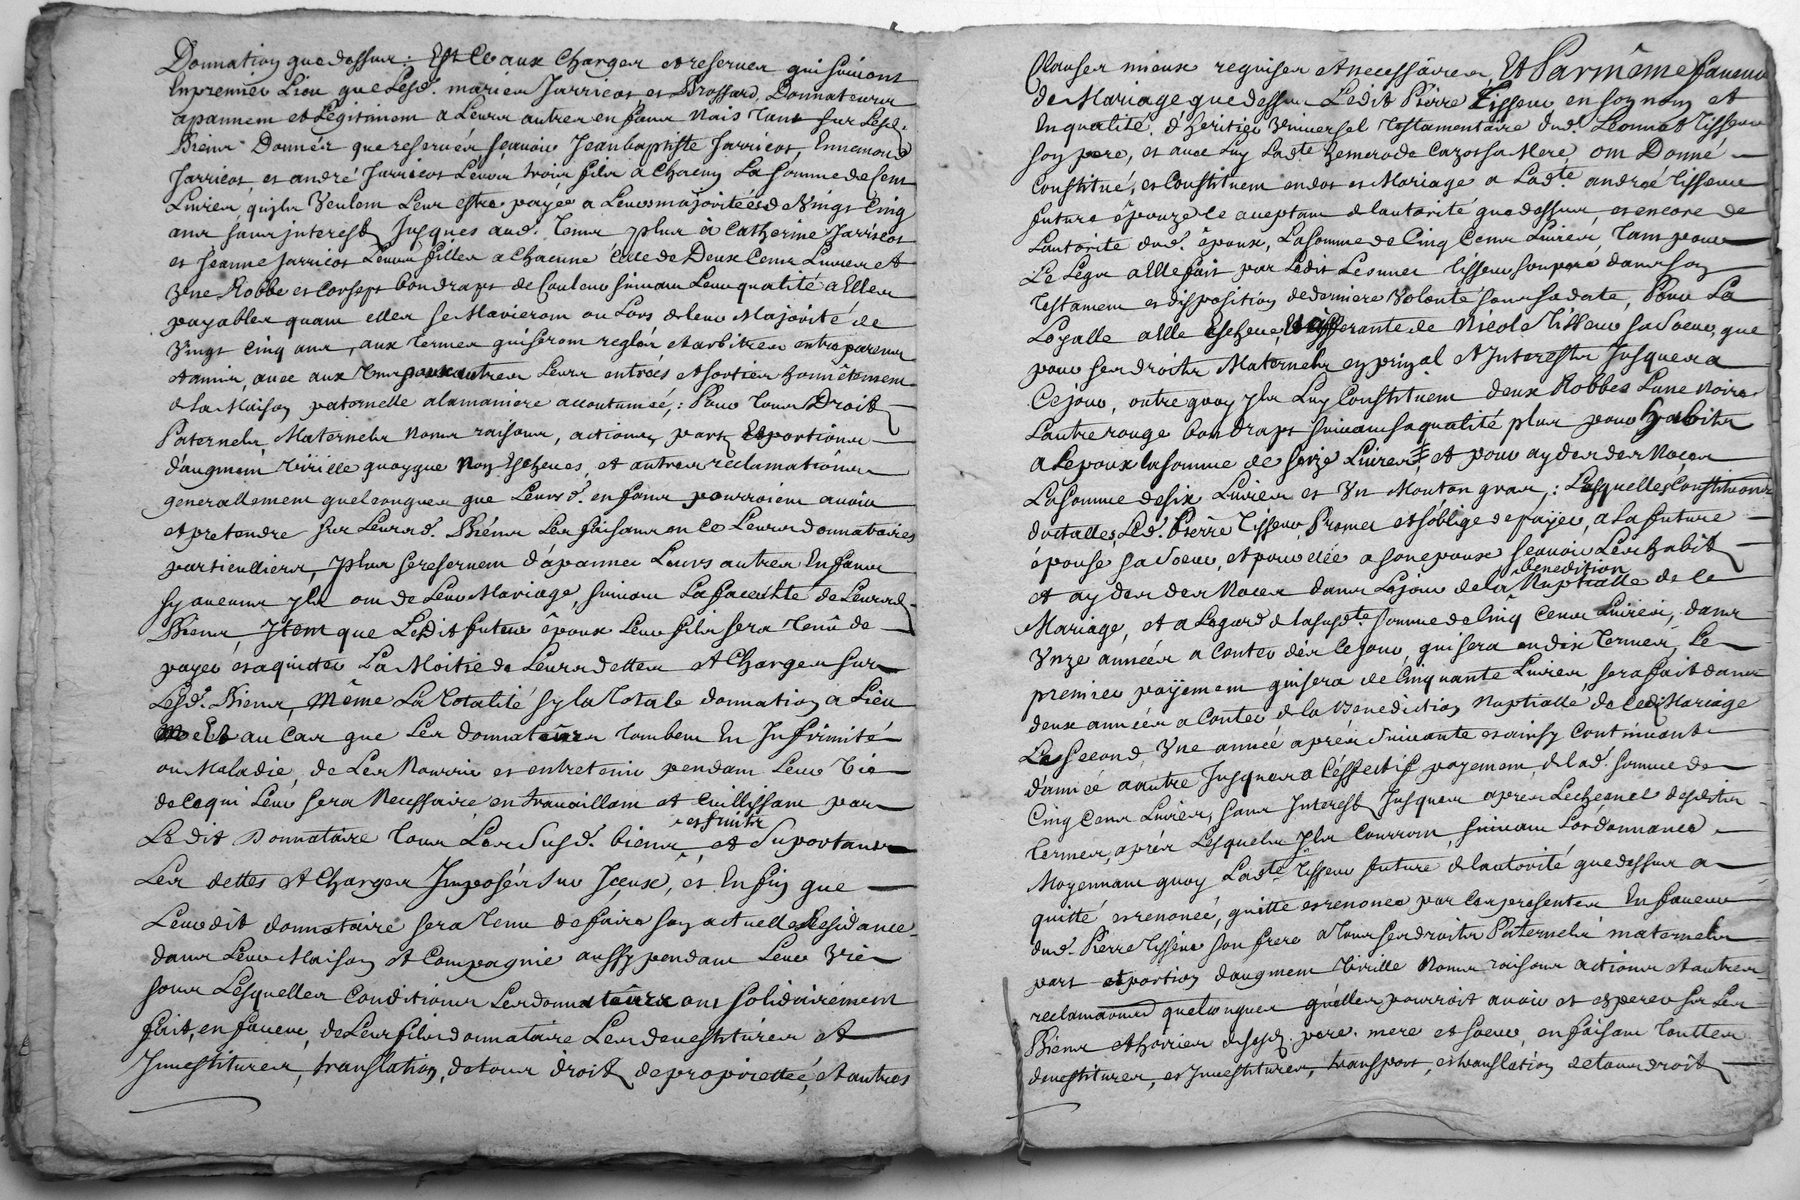 Donnation que dessus : Est Ce aux charges et reserves qui suivent
En premier Lieu que Lesd. mariés Jarricot et Brossard Donnateurs
apannent et Legitiment a Leurs autres enfans Nais tant sur Lesd.
Biens Donnés que reservés sçavoir Jean baptiste Jarricot, Ennemond
Jarricot, et andré Jarricot Leurs trois fils a Chacun La somme de Cent
Livres quils Veulent Leur estre payée a Leurs majoritées de Vingt Cinq
ans sans interest Jusques aud. tems plus à Catherine Jarricot
et Jeanne Jarricot Leurs filles a Chacune Celle de Deux Cent Livres et
Vne Robbe et Corsept bon draps de Couleur suivant Leur qualité a Elles
payables quant elles se Marieront ou Lors de leur Majorité de
Vingt Cinq ans, aux termes qui seront reglés et arbitrés entre parens
et amis, avec aux tems Leurs entrées et sorties honnêtement
de La Maison paternelle a la maniere accoutumée, : Pour tous Droits
Paternels, Maternels Noms raisons, actions, parts Et portions
d'augment Virille quoyque Non Escheues, et autres reclamations
generallement quelconques que Leursd. enfans pourroient avoir
et pretendre sur Leursd. Biens Les faisant en Ce Leurs donnataires
particulliers, Plus se reservent d'apanner Leurs autres Enfans
sy aucuns yls ont de Leur Mariage, suivant La faculté de Leursd.
Biens, Jtem que Ledit futur époux Leur fils sera tenû de
payer et aquiter La Moitié de Leurs dettes et Charges sur
Lesd. Biens, Même La totalité sy la totale donnation a Lieu
Et au Cas que Les donnateurs tombent En Jnfirmité
ou Maladie, de Les Nourrir et entretenir pendant Leur Vie
de Ce qui Leur sera Necessaire en travaillant et Cuillissant par
et fruits
Ledit Donnataire tous Les Susd. biens, et Suportant
Les dettes et Charges Jmposés sur Jceux, et Enfin que
Leurdit donnataire sera tenu de faire son actuelle Residance
dans Leur Maison et Compagnie aussy pendant Leur Vie
sous Lesquelles Conditions Les donnateurs ont solidairement
fait, en faveur de Leur fils donnataire Les devestitures et
Jnvestitures, translation, de tous droits de proprietté, et autres
Clauses mieux requises et necessaires, Et Par même faveur
de Mariage que dessus Ledit Pierre Tisseur en son nom et
En qualité d'heritier Vniversel testamentaire dud. Leonnet Tisseur
son pere, et avec Luy Ladte de Cazot sa Mere ont Donné
Constitué, et Constituent en dot et Mariage a Ladte. andrée Tisseur
future épouze Ce aceptant de l'autorité que dessus, et encore de
L'autorité dud. époux, La somme de Cinq Cent Livres, tant pour
Le Legs a Elle fait par Ledit Leonnet Tisseur son pere dans son
testament et disposition de derniere Volonté sous sa date, Pour La
Loyalle a Elle Escheue, de Nicole Tisseur sa Soeur, que
pour ses droits Maternels en prinçal et Jnterests Jusques a
Ce jour, outre quoy yls Luy Constituent deux Robbes L'une Noire
L'autre rouge bon draps suivant sa qualité plus pour habits
a Lepoux la somme de seize Livres, et pour ayder des Noces
La somme de six Livres et Vn Mouton gras, : Lesquelles Constitutions
dotalles, Led. Pierre Tisseur, Promet et soblige de payer, a La future
épouse sa Soeur, et pour elle a son epoux sçavoir Les habits
benediction
et ayder des Noces dans Le jour de la Nuptialle de Ce
Mariage, et a Legard de la susdte. somme de Cinq Cent Livres, dans
Vnze années a Conter dès Ce jour, qui sera en dix termes, Le
premier payement qui sera de Cinquante Livres, sera fait dans
deux années a Conter de la Benediction Nuptialle de Cedt Mariage
Le Second Vne année après Suivante et ainsy Continuant
d'année a autre Jusques a L'effectif payement de Lad. somme de
Cinq Cent Livres, sans Jnterest Jusques apres L'echeance desdits
termes, aprés Lesquels Jls Courront suivant L'ordonnance
Moyennant quoy Ladte Tisseur future de l'autorité que dessus a
quitté et renoncé, quitte et renonce par Ces presentes En faveur
dud. Pierre Tisseur son frere a tous ses droits Paternels maternels
part et portion d'augment Virille Noms raisons actions et autres
reclamations quelconques qu'elles pourroit avoir et esperer sur Les
Biens et hoiries de sesd. pere. mere et soeur, en faisant touttes
devestitures, et Jnvestitures, transport, et translation de tous droits